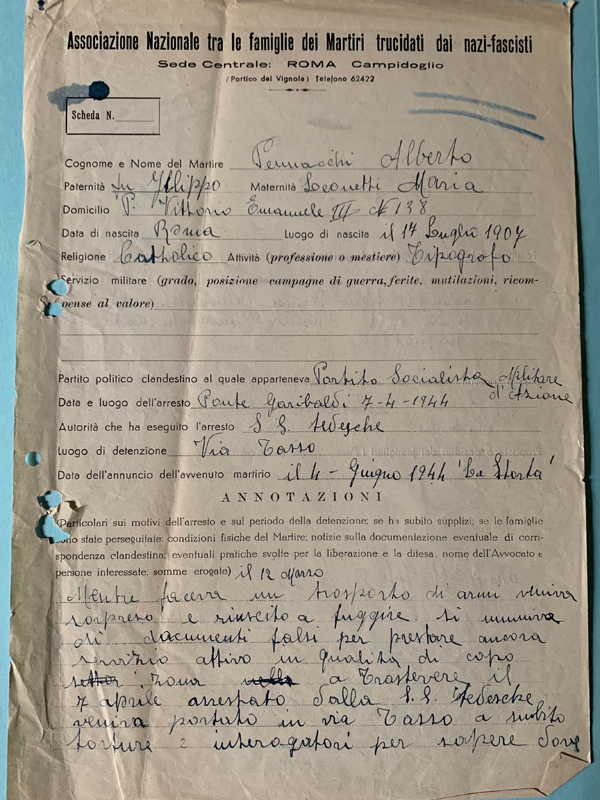 Associazione Nazionale tra le famiglie dei Martiri trucidati dai nazi-fascisti
Sede Centrale: ROMA Campidoglio
(Portico del Vignola) Telefono 62422
Scheda N.
Cognome e Nome del Martire Pennacchi Alberto
Paternità fu Filippo Maternità Loconetti Maria
Domicilio P. Vittorio Emanuele III N 138
Data di nascita Roma Luogo di nascita il 17 Luglio 1907
Religione Catholico Attività (professione o mestiere) Tipografo
Servizio militare (grado, posizione campagne di guerra, ferite, mutilazioni, ricom-
pense al valore)
Partito politico clandestino al quale apparteneva Partito Socialista Militare
d'Azione
Data e luogo dell'arresto Ponte Garibaldi 7-4-1944
Autorità che ha eseguito l'arresto S.S. tedesche
Luogo di detenzione Via Tasso
Data dell'annuncio dell'avvenuto martirio il 4 - Giugno 1944 'La Storta'
ANNOTAZIONI
(Particolari sui motivi dell'arresto e sul periodo della detenzione; se ha subito supplizi; se le famiglie
sono state perseguitate: condizioni fisiche del Martire; notizie sulla documentazione eventuale di corri-
spondenza clandestina; eventuali pratiche svolte per la liberazione e la difesa, nome dell'Avvocato e
persone interessate; somme erogate) il 12 Marzo
Mentre faceva un trosporto di armi veniva
sorpreso e riuscito a fuggire si muniva
di documenti falsi per prestare ancora
servizio attivo in qualità di capo
settor zona nella a Trastevere il
7 aprile arrestato dalla S.S. Tedesche
veniva portato in via Tasso a subito
torture e interagatori per sapere dove